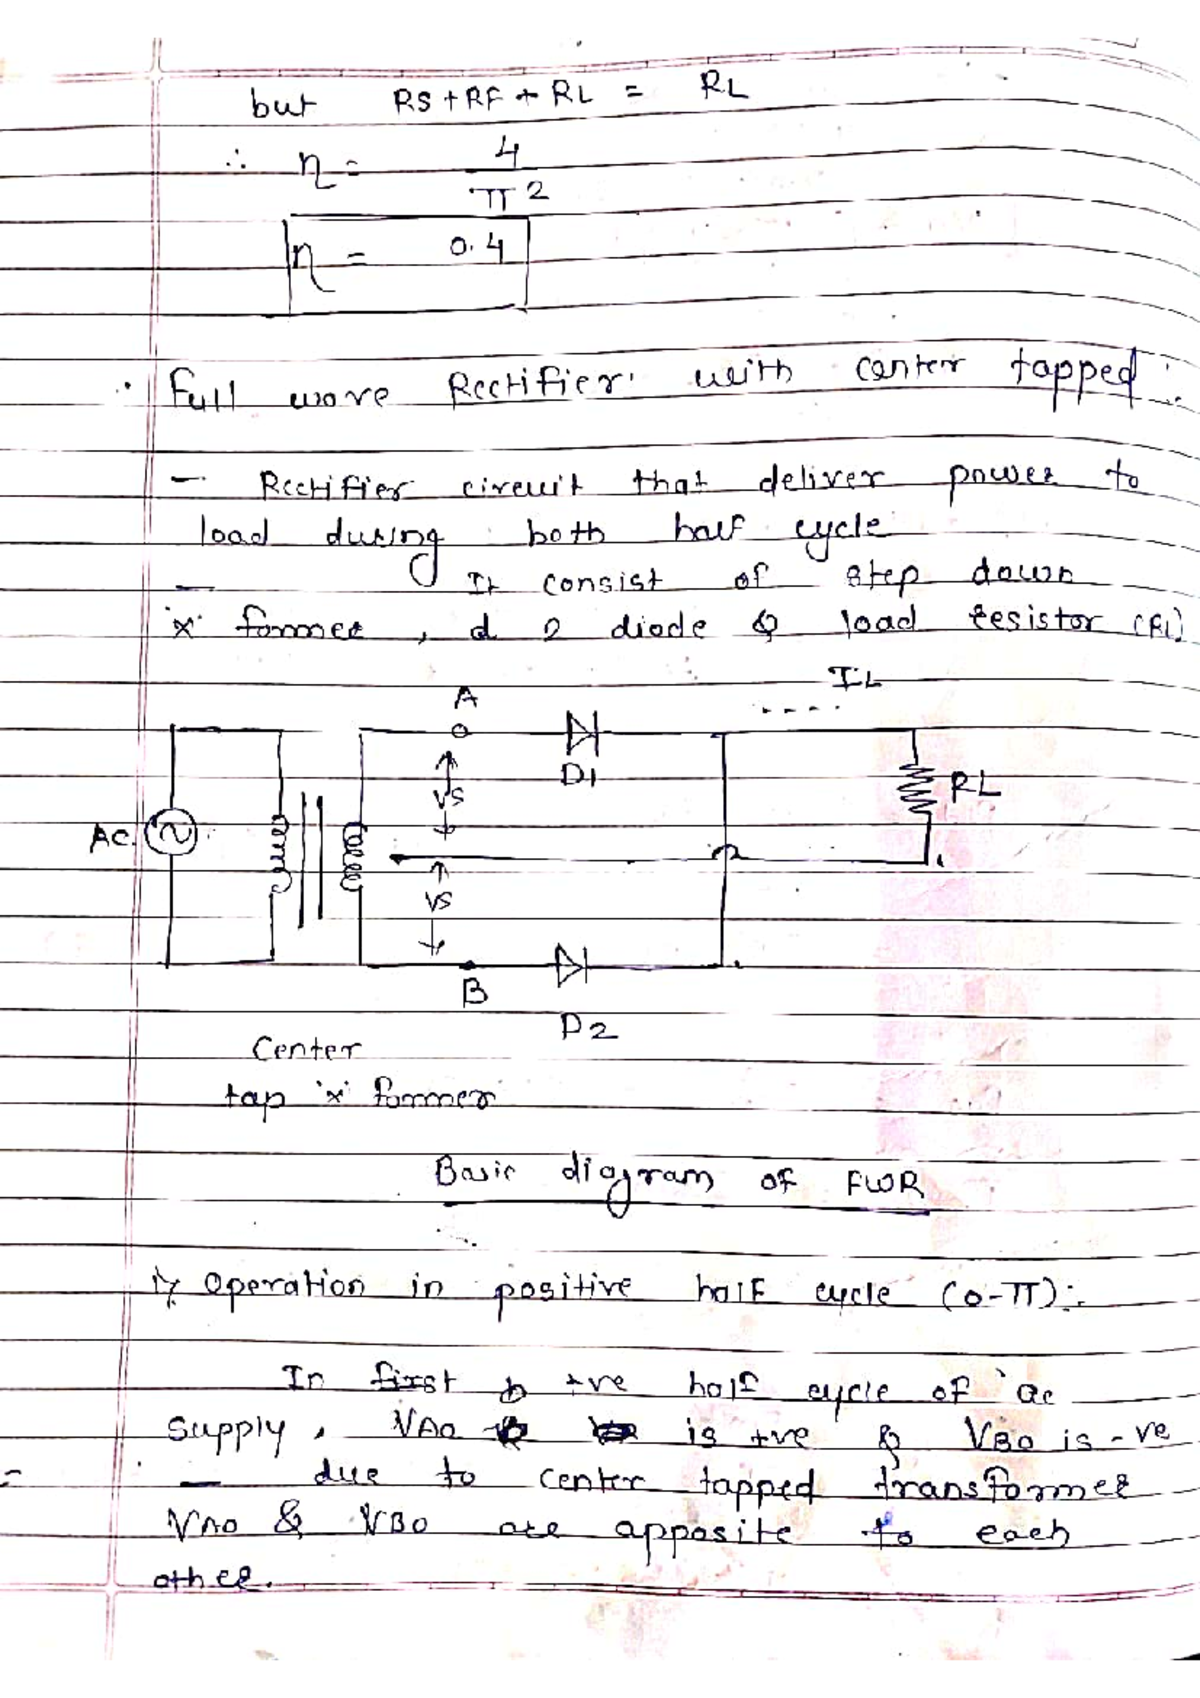 but RS + RF + RL = RL
∴ η = 4
π²
η = 0.4
• Full wave Rectifier with center tapped :
- Rectifier circuit that deliver power to
load during both half cycle
- It consist of step down
'x' former, d 2 diode & load resistor (RL)
IL
A
D1
VS
RL
AC
VS
B
D2
Center
tap 'x' former
Basic diagram of FWR
1) Operation in positive half cycle (0-π):-
In first +ve half cycle of ac
supply, VAO is +ve & VBO is -ve
- due to center tapped transformer
VAO & VBO are apposite to each
other.